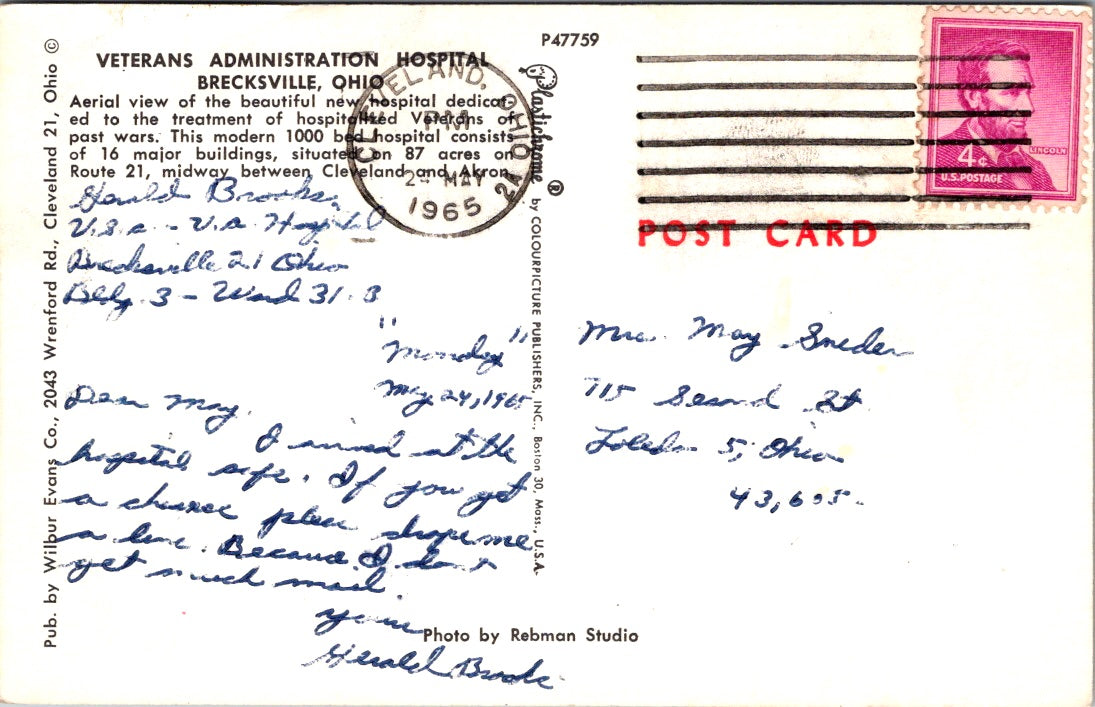 P47759
VETERANS ADMINISTRATION HOSPITAL
BRECKSVILLE, OHIO
Aerial view of the beautiful new hospital dedicat-
ed to the treatment of hospitalized Veterans of
past wars. This modern 1000 bed hospital consists
of 16 major buildings, situated on 87 acres on
Route 21, midway between Cleveland and Akron.
CLEVELAND, OHIO
PM
24 MAY
1965
LINCOLN
4¢
U.S. POSTAGE
POST CARD
Gerald Brooks
U.S.A - V.A. Hospital
Brecksville 21 Ohio
Bldg. 3 - Ward 31. B
"Monday"
May 24, 1965
Dear May,
I arrived at the
hospital safe. If you get
a chance please drop me
a line. Because I don't
get much mail.
Yours
Gerald Brooks
Mrs. May Sneder
715 Second St
Toledo 5, Ohio
43,605.
Pub. by Wilbur Evans Co., 2043 Wrenford Rd., Cleveland 21, Ohio ©
Plastichrome ® by COLOURPICTURE PUBLISHERS, INC., Boston 30, Mass., U.S.A.
Photo by Rebman Studio